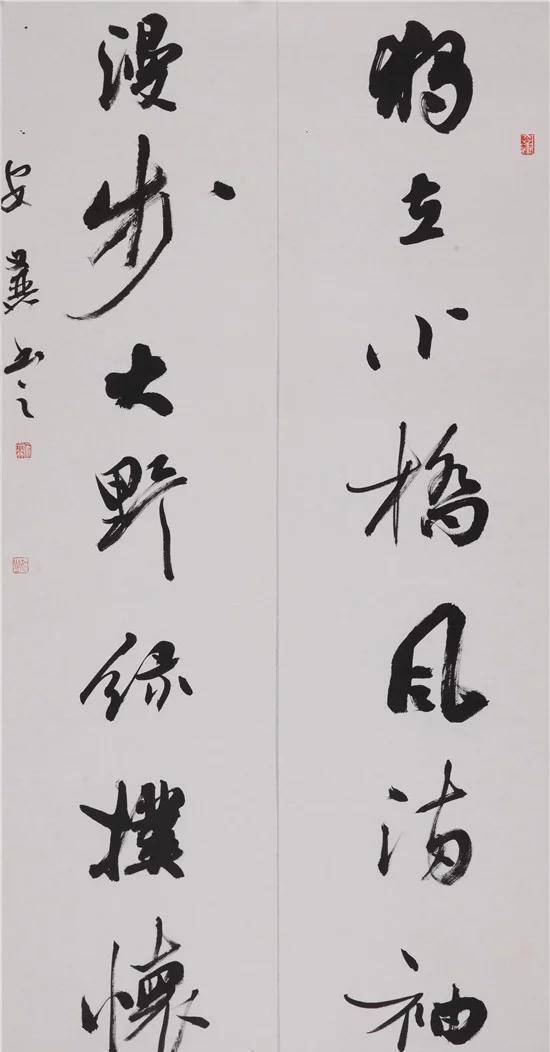 獨立小橋風滿袖
漫步大野綠撲懷
安冀書之